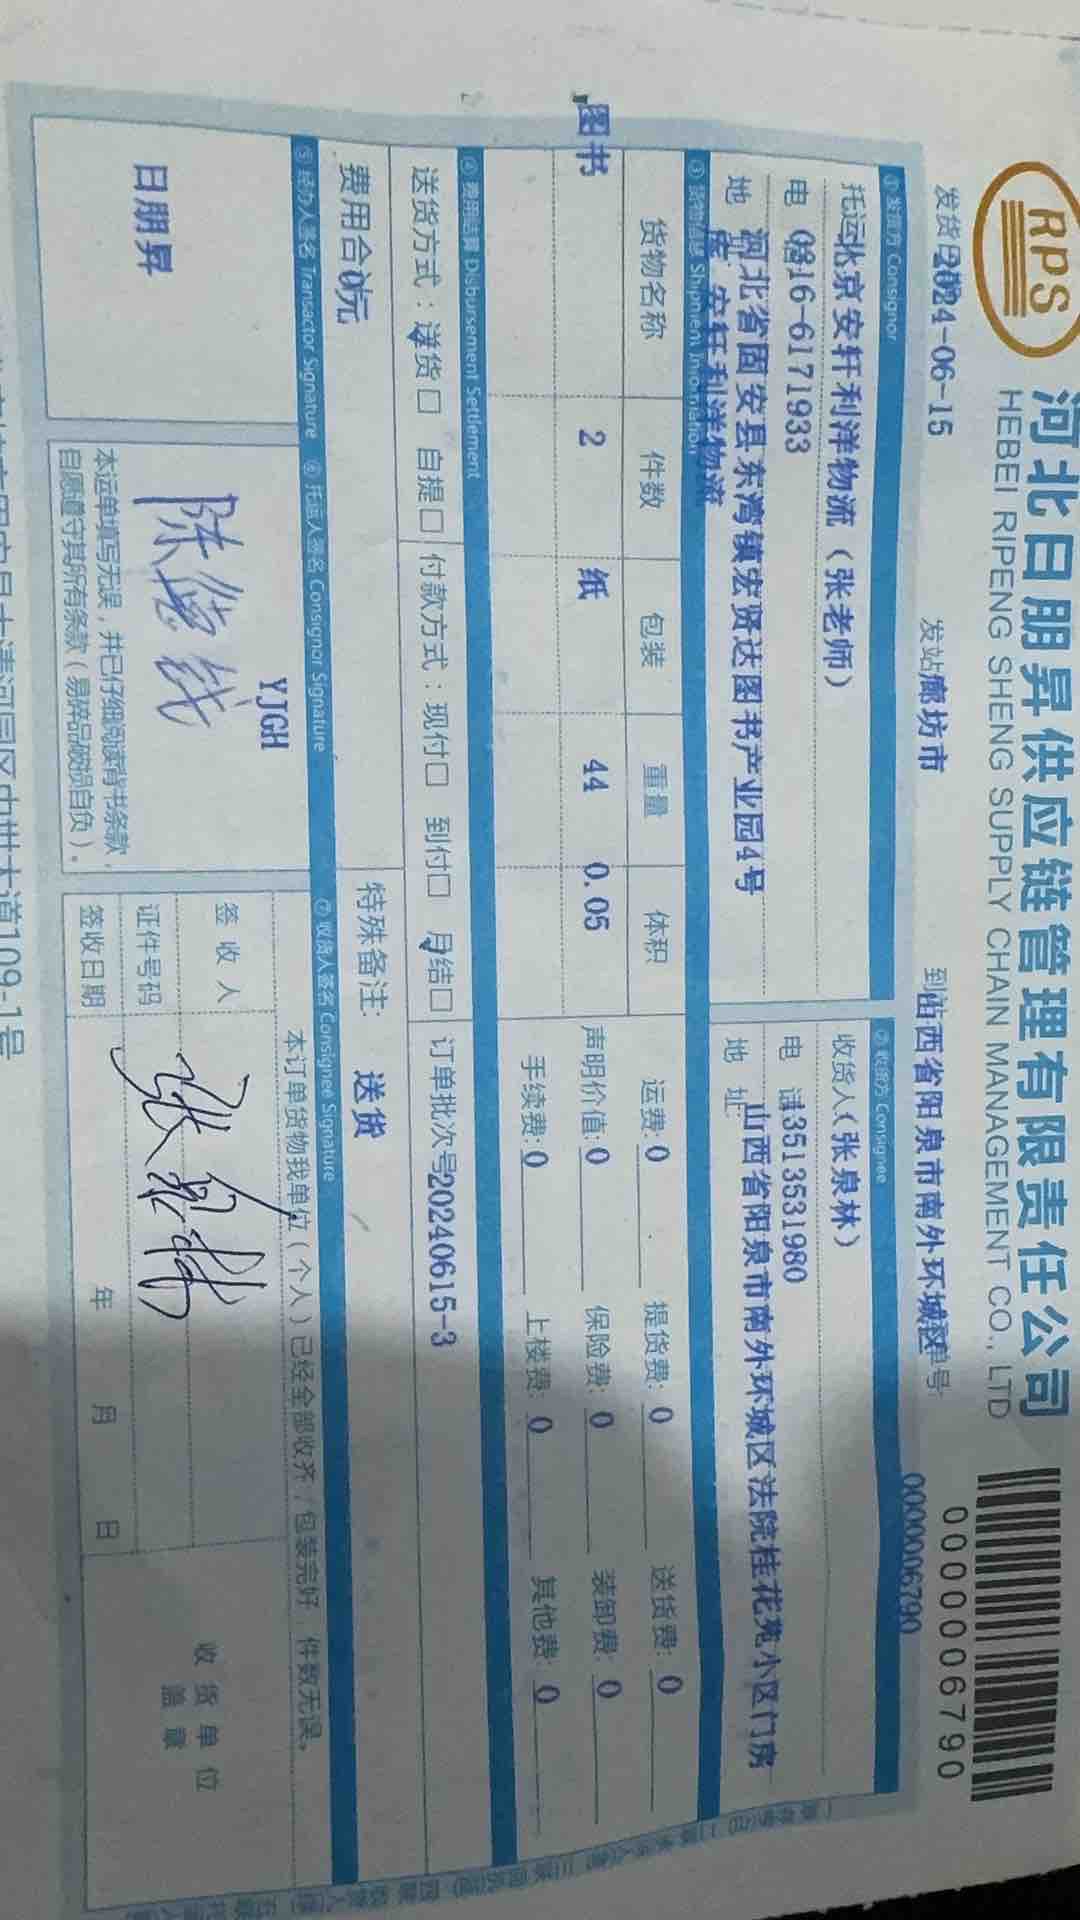 RPS
河北日朋昇供应链管理有限责任公司
HEBEI RIPENG SHENG SUPPLY CHAIN MANAGEMENT CO., LTD
0000006790
发货日期2024-06-15 发站廊坊市 到站山西省阳泉市南外环城区 单号: 0000006790
① 发货方 Consignor ② 收货方 Consignee
托运 北京安轩利洋物流（张老师） 收货人（张泉林）
电 0316-6171933 电 话13513531980
地 址 河北省固安县东湾镇宏贤达图书产业园4号库 安轩利洋物流 地 址 山西省阳泉市南外环城区法院桂花苑小区门房
③ 货物信息 Shipment Information
货物名称 件数 包装 重量 体积 运费:0 提货费:0 送货费:0
图书 2 纸 44 0.05 声明价值:0 保险费:0 装卸费:0
手续费:0 上楼费:0 其他费:0
④ 费用结算 Disbursement Settlement
送货方式：送货□ 自提□ 付款方式：现付□ 到付□ 月结□ 订单批次号20240615-3
费用合 0元 特殊备注: 送货
⑤ 经办人签名 Transactor Signature ⑥ 托运人签名 Consignor Signature ⑦ 收货人签名 Consignee Signature
日朋昇
YJGH
本运单填写无误，并已仔细阅读背书条款，
自愿遵守其所有条款（易碎品破损自负）。
本订单货物我单位（个人）已经全部收齐，包装完好，件数无误。
签收人 张泉林
证件号码
签收日期 年 月 日
收货单位
盖章
大道109-1号